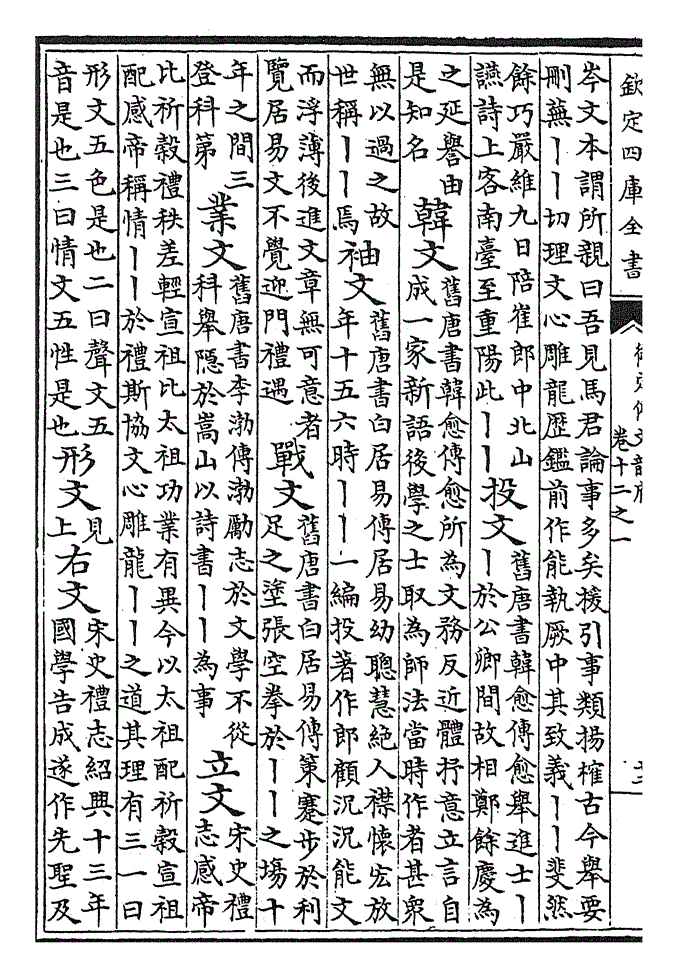 欽定四庫全書
卷十二之一
岑文本謂所親曰吾見馬君論事多矣援引事類揚榷古今舉要
刪蕪丨丨切理文心雕龍歷鑑前作能執厥中其致義丨丨斐然
餘巧嚴維九日陪崔郎中北山
讌詩上客南臺至重陽此丨丨
投文
舊唐書韓愈傳愈舉進士丨
丨於公卿間故相鄭餘慶為
之延譽由
是知名
韓文
舊唐書韓愈傳愈所為文務反近體抒意立言自
成一家新語後學之士取為師法當時作者甚衆
無以過之故
世稱丨丨焉
袖文
舊唐書白居易傳居易幼聰慧絶人襟懷宏放
年十五六時丨丨一編投著作郎顧况况能文
而浮薄後進文章無可意者
覽居易文不覺迎門禮遇
戰文
舊唐書白居易傳策蹇步於利
足之塗張空拳於丨丨之場十
年之間三
登科第
業文
舊唐書李渤傳渤勵志於文學不從
科舉隱於嵩山以詩書丨丨為事
立文
宋史禮
志感帝
比祈穀禮秩差輕宣祖比太祖功業有異今以太祖配祈穀宣祖
配感帝稱情丨丨於禮斯協文心雕龍丨丨之道其理有三一曰
形文五色是也二曰聲文五
音是也三曰情文五性是也
形文
見
上
右文
宋史禮志紹興十三年
國學告成遂作先聖及